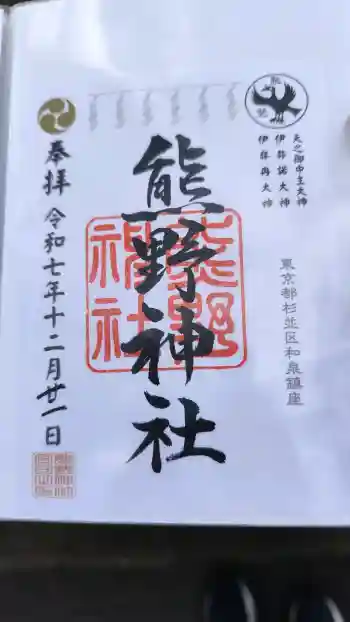 熊野
天之御中主大神
伊弉諾大神
伊弉冉大神
東京都杉並区和泉鎮座
熊野神社
熊野
神社
奉拝 令和七年十二月廿一日